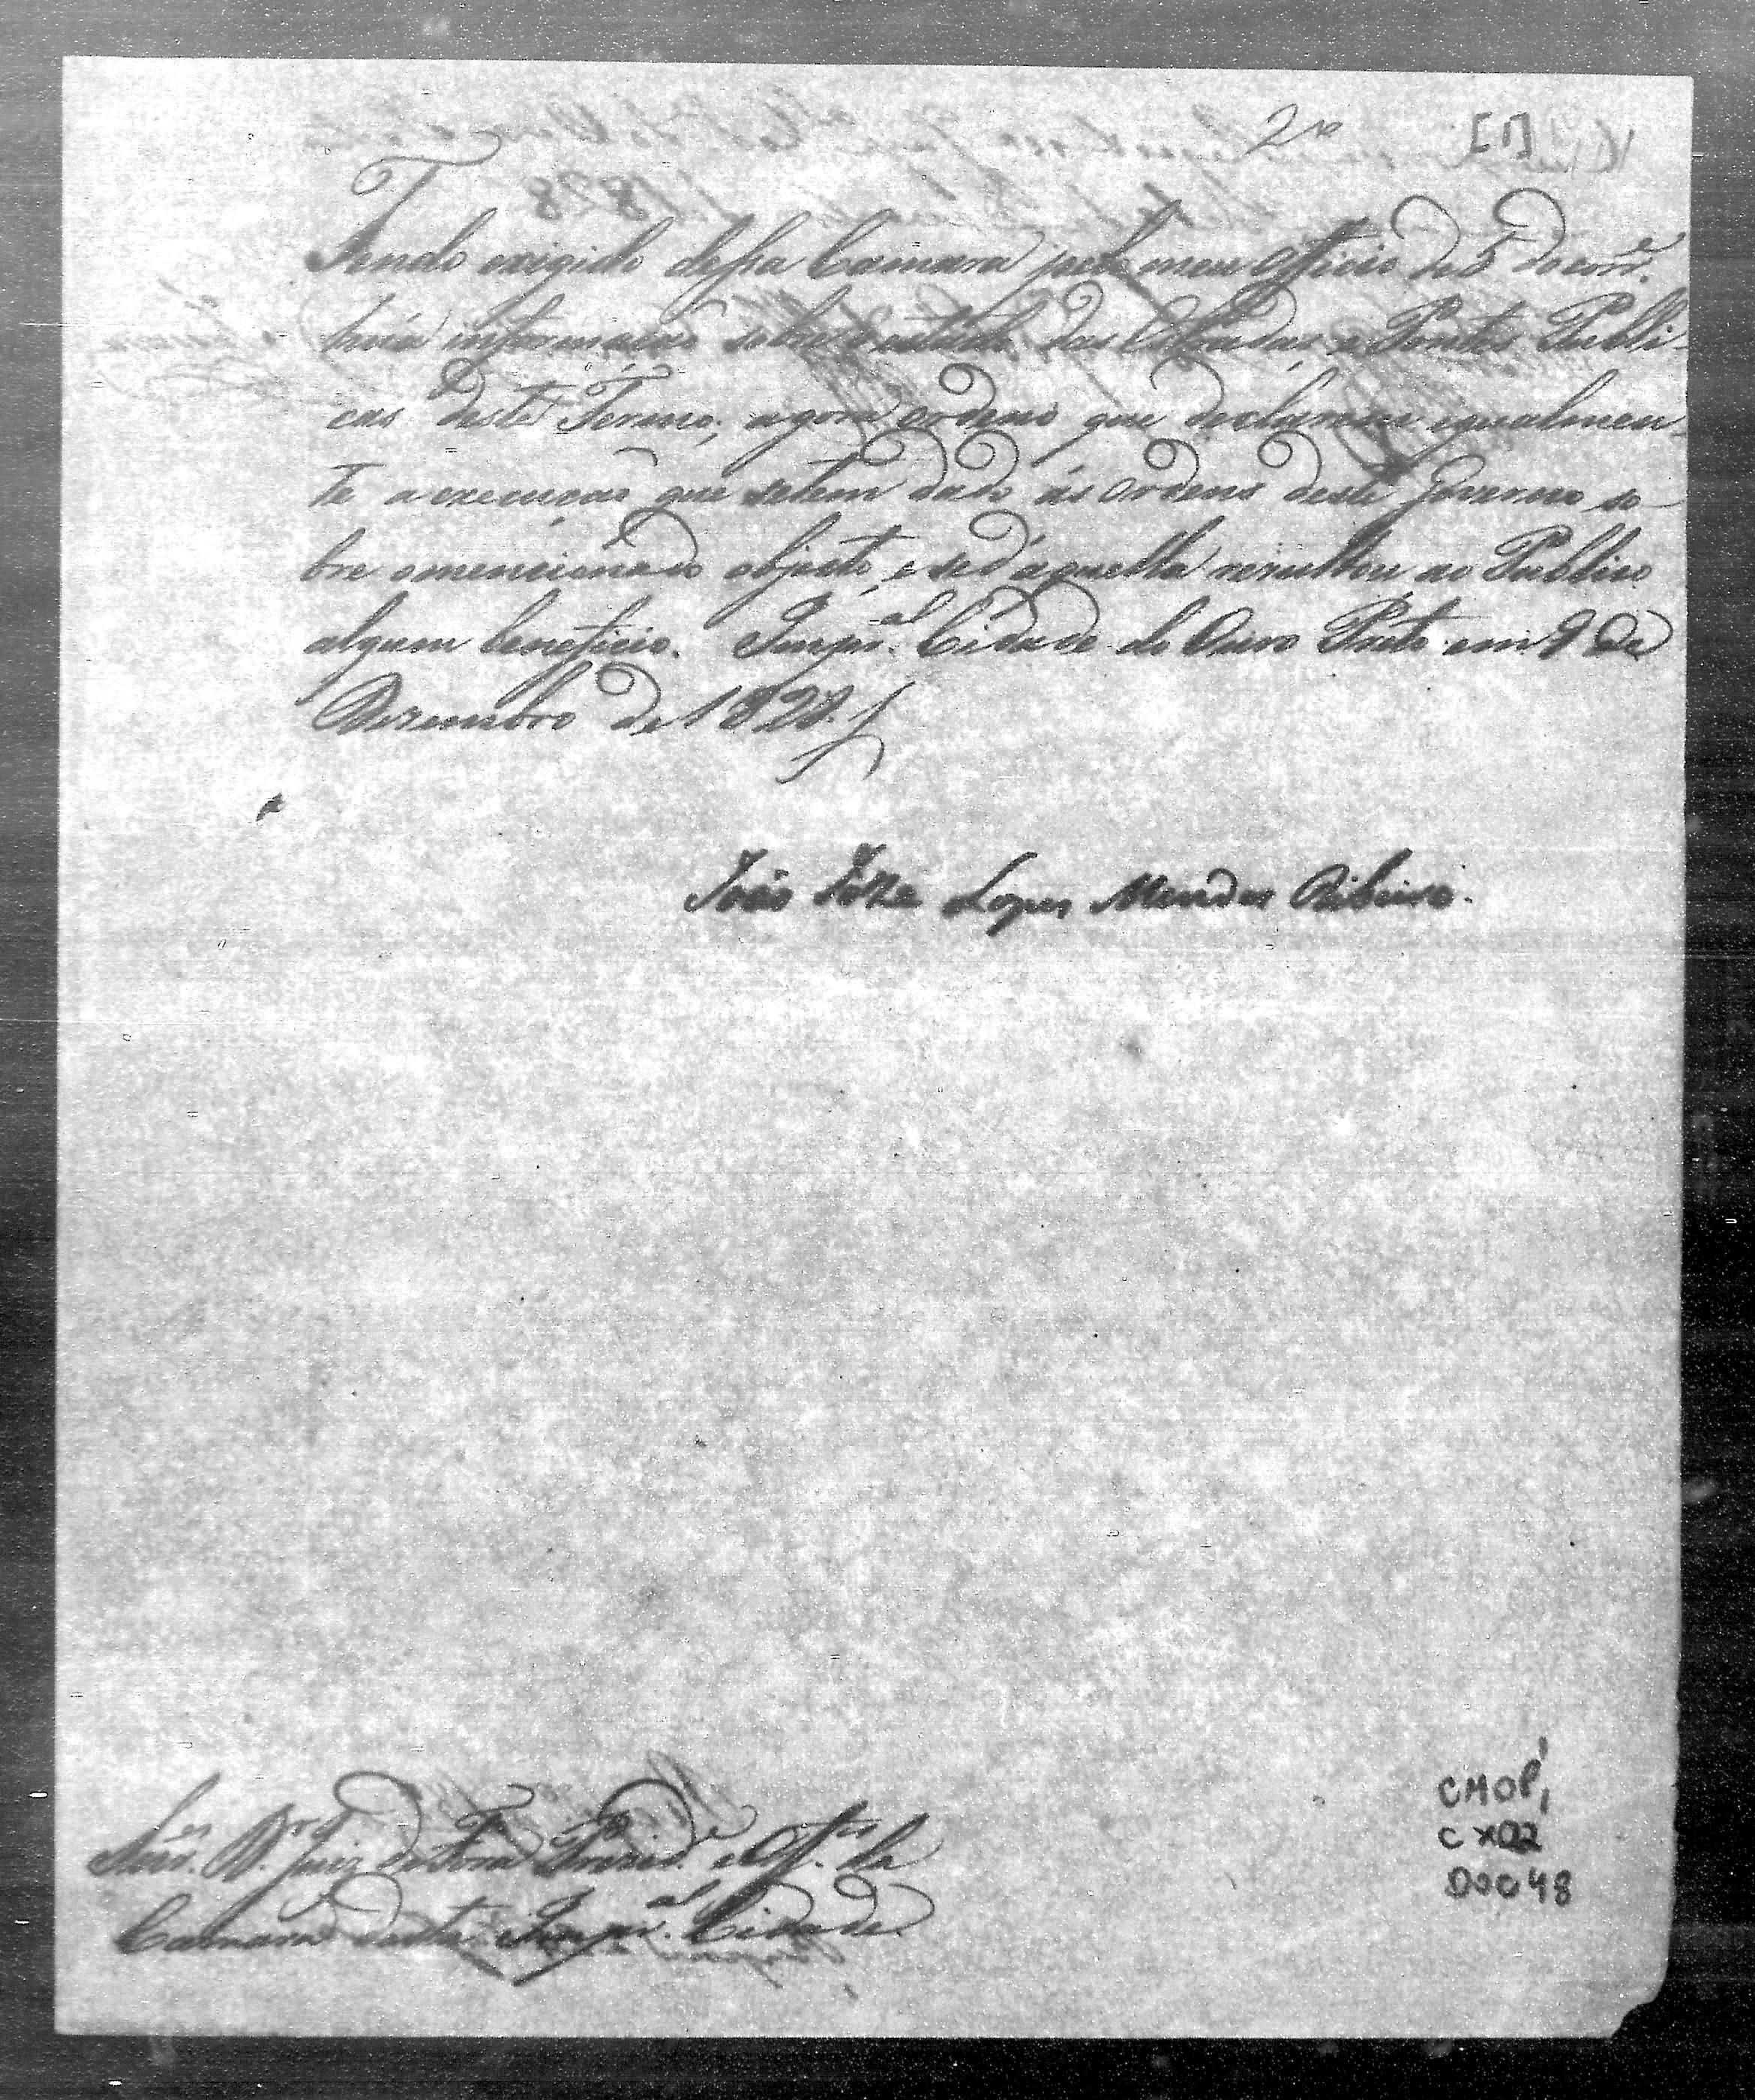 2ª [1]
Tendo exigido dessa Camara pelo meu Officio de 5 do corr.e
huã informação sobre o estado das Estradas, e Pontes Publi-
cas deste Termo; agora ordeno que declarem igualmen-
te a execução que se tem dado ás ordens deste Governo so-
bre o mencionado objecto, e se d'aquella resultou ao Publico
algum beneficio. Imper.al Cidade do Ouro Preto em 9 de
Dezembro de 1828.
João Joze Lopes Mendes Ribeiro.
Snr.es D.r Juiz de Fora Presid.e e Off.es da
Camara desta Imper.al Cidade
CMOP,
CX02
D0048